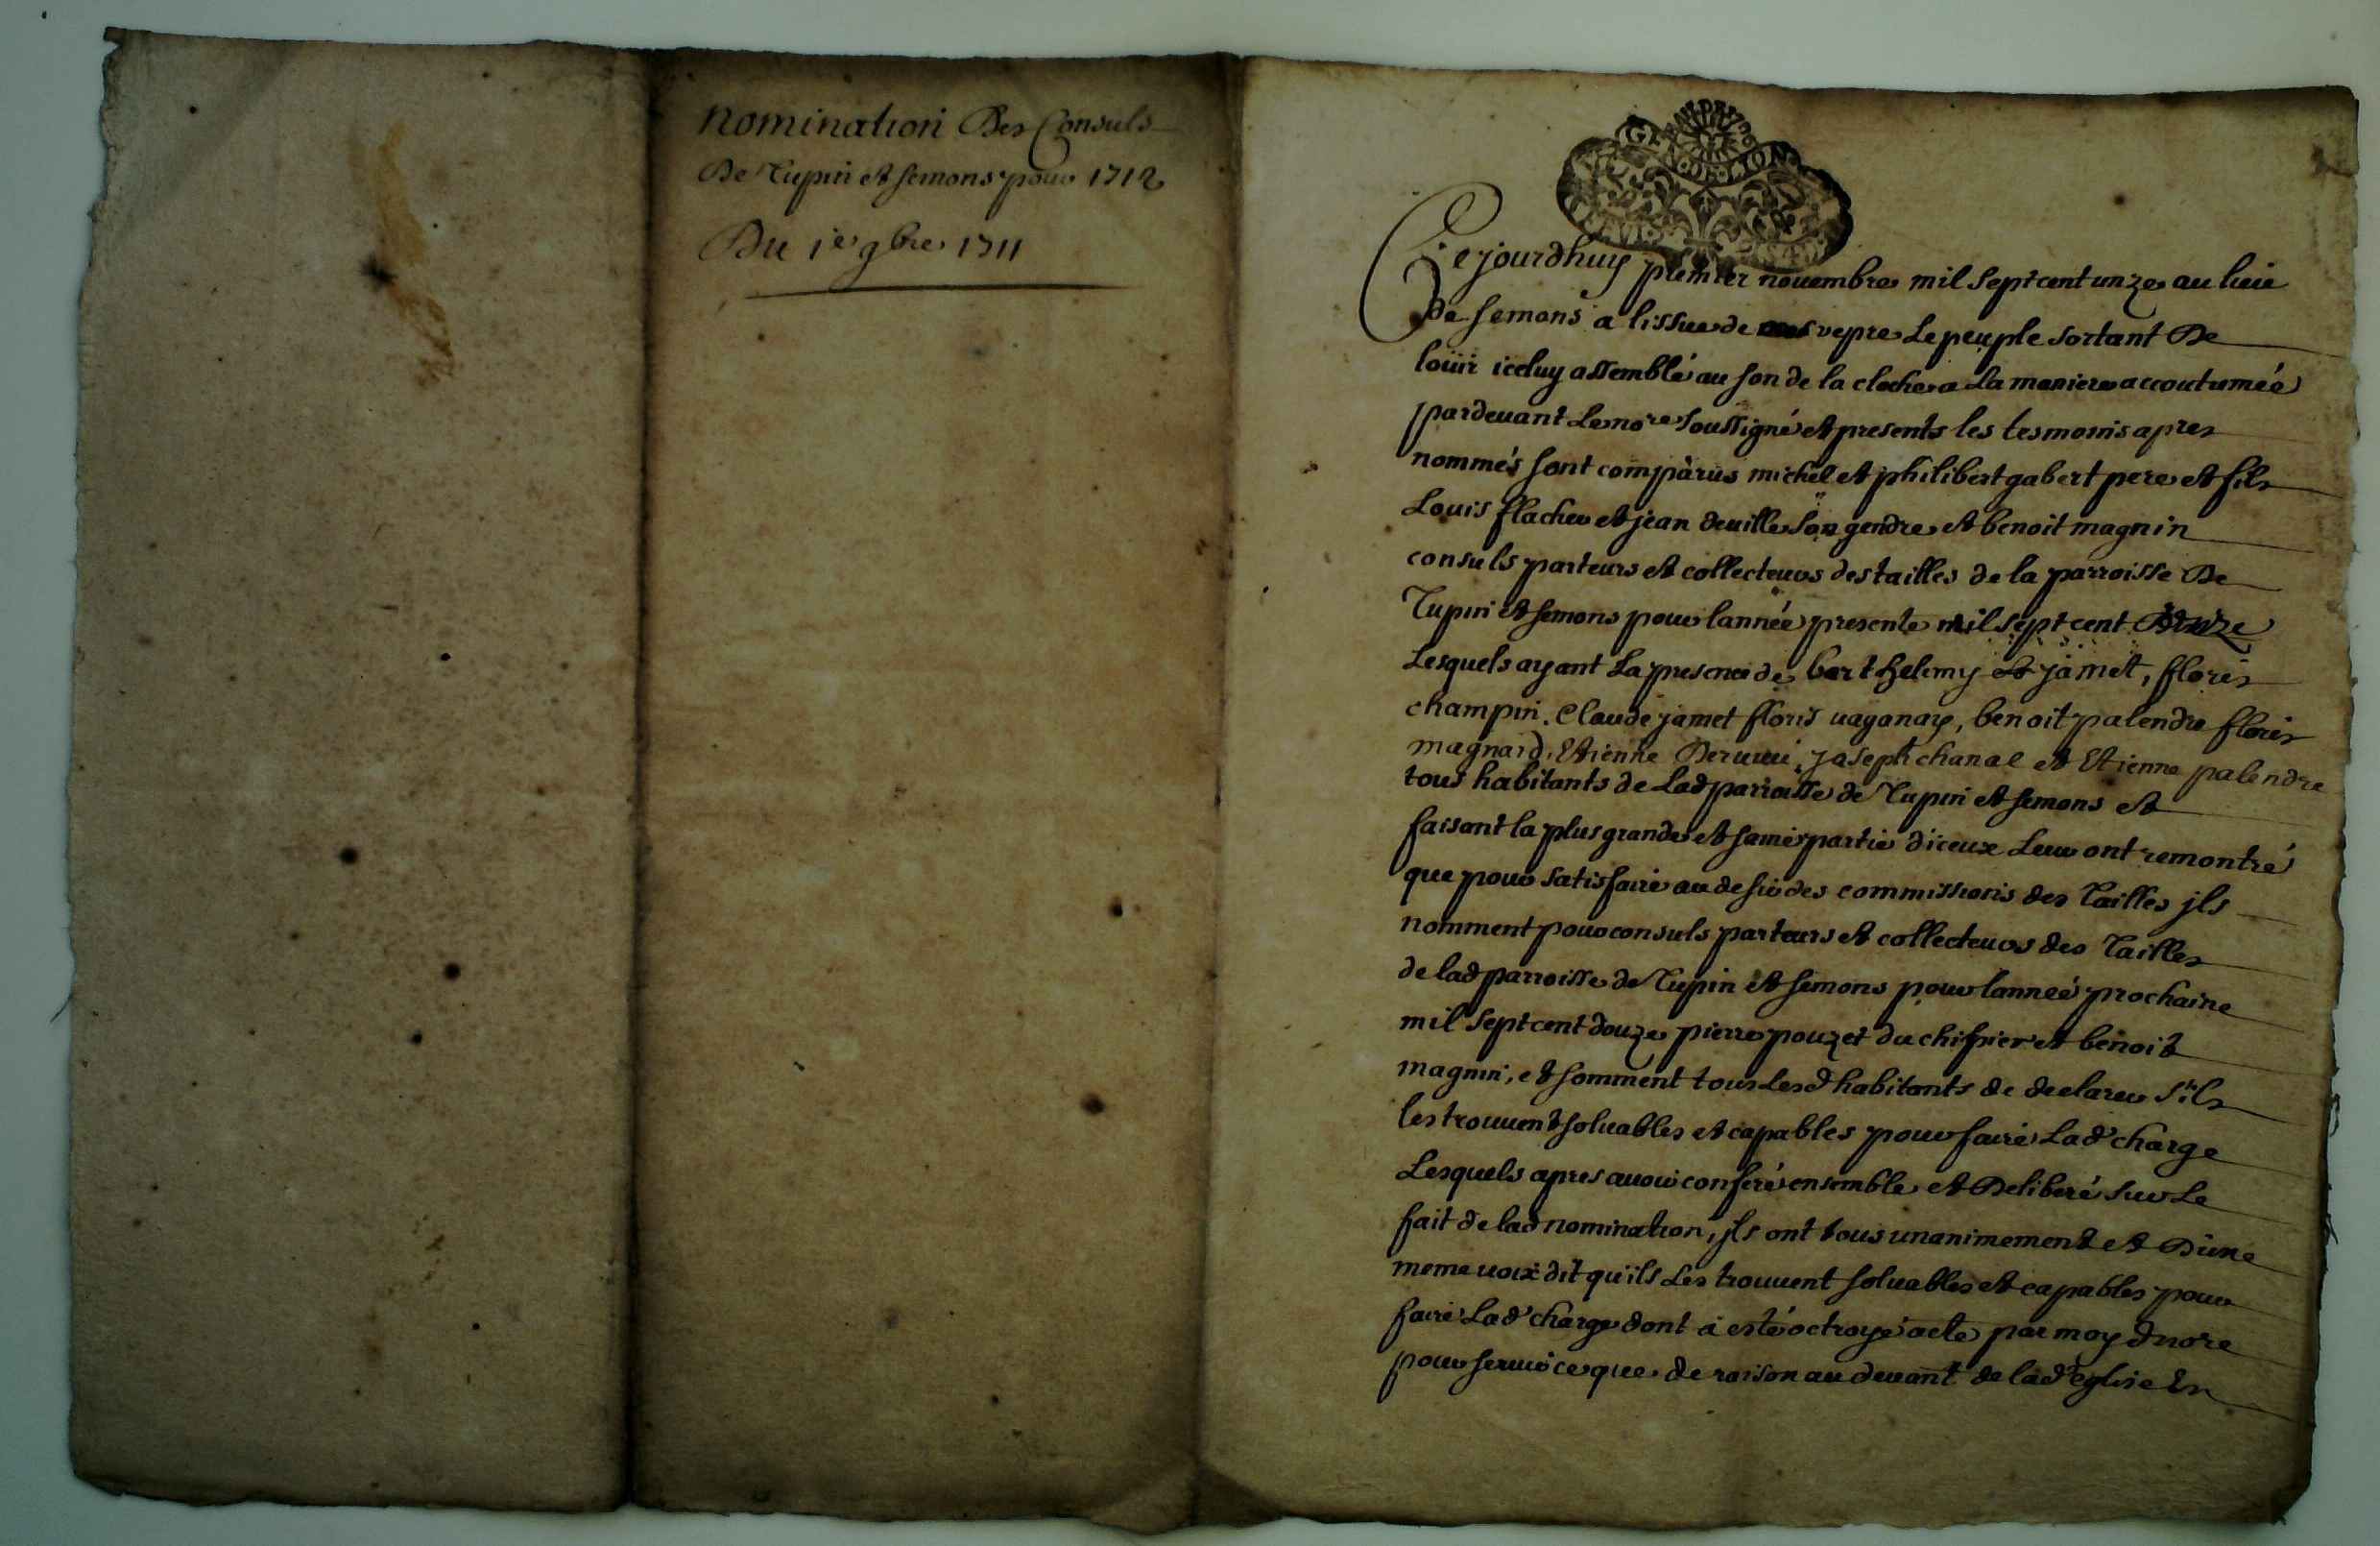 nomination Des Consuls
De Tupin et Semons pour 1712
Du 1er 9bre 1711
GEN DE LION
Ce jourdhuy premier novembre mil sept cent unze au lieu
de Semons a lissue de vepre Le peuple sortant De
louïr iceluy assemblé au son de la cloche a La maniere accoutumée
pardevant Le nore soussigné et presents les tesmoins apres
nommés sont comparus michel et philibert gabert pere et fils
Louis flacher et jean deville son gendre et benoit magnin
consuls parteurs et collecteurs des tailles de la parroisse De
Tupin et Semons pour lannée presente mil sept cent
Lesquels ayant La presence de barthelemy jamet, floris
champin, Claude jamet floris vaganay, benoit palendre floris
magnard, Etienne joseph chanal et Etienne palendre
tous habitants de Lad parroisse de Tupin et Semons et
faisant la plus grande et saine partie diceux Leur ont remontré
que pour satisfaire au desir des commissions des Tailles jls
nomment pour consuls parteurs et collecteurs des Tailles
de lad parroisse de Tupin et Semons pour lannée prochaine
mil sept cent douze pierre pouzet du et benoit
magnin, et somment tous Lesd habitants de declarer s'ils
les trouvent solvables et capables pour faire Lad charge
Lesquels apres avoir conferé ensemble et Deliberé sur Le
fait de lad nomination, jls ont tous unanimement et Dune
meme voix dit quils Les trouvent solvables et capables pour
faire Lad charge dont a esté octroyé acte par moy d nore
pour servir ce que de raison au devant de lad eglise En